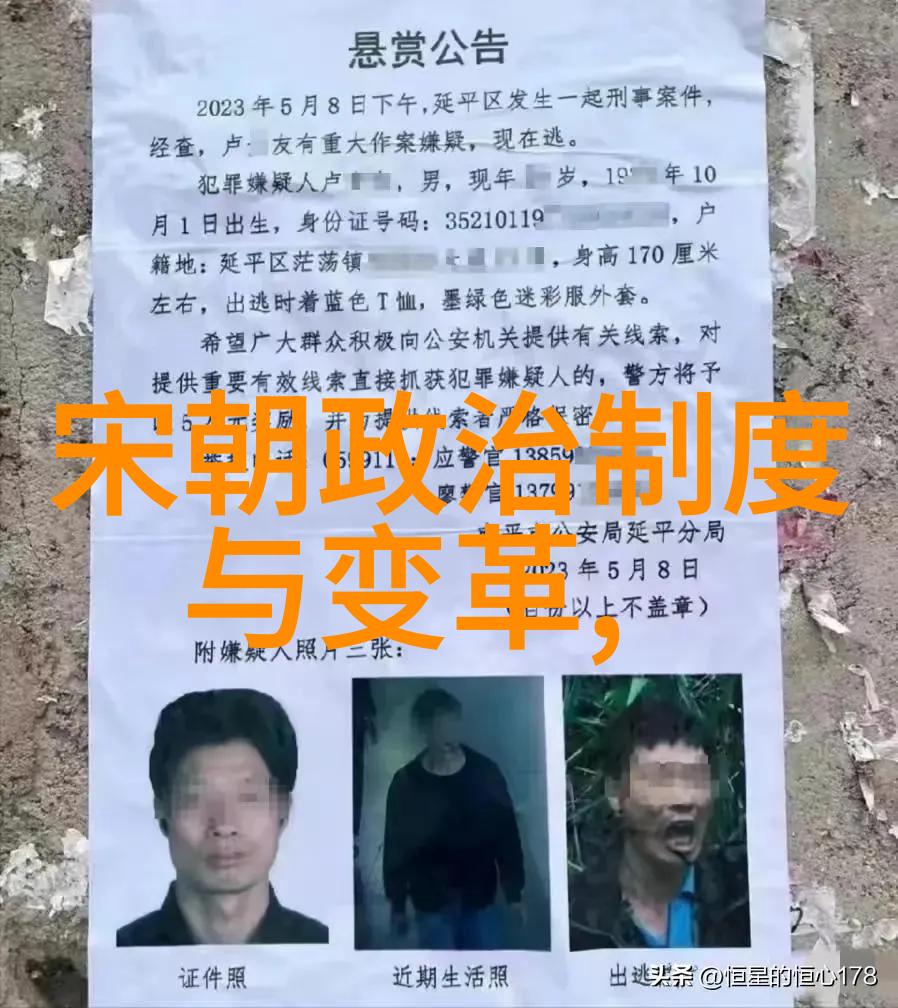 悬赏公告
2023年5月8日下午,延平区发生一起刑事案件,
经查,卢 友有重大作案嫌疑,现在逃。
犯罪嫌疑人卢 ,男,现年 岁,19 年10
月1日出生,身份证号码:35210119 ,户
籍地:延平区茫荡镇 ,身高170厘米
左右,出逃时着蓝色T恤,墨绿色迷彩服外套。
希望广大群众积极向公安机关提供有关线索,对
提供重要有效线索直接抓获犯罪嫌疑人的,警方将予
宋朝政治制度
与变革,
应警官13859
警官13799
公安局延平分局
2023年5月8日
以上不盖章)
附嫌疑人照片三张:
证件照
近期生活照
出逃
头条 @恒星的恒心178